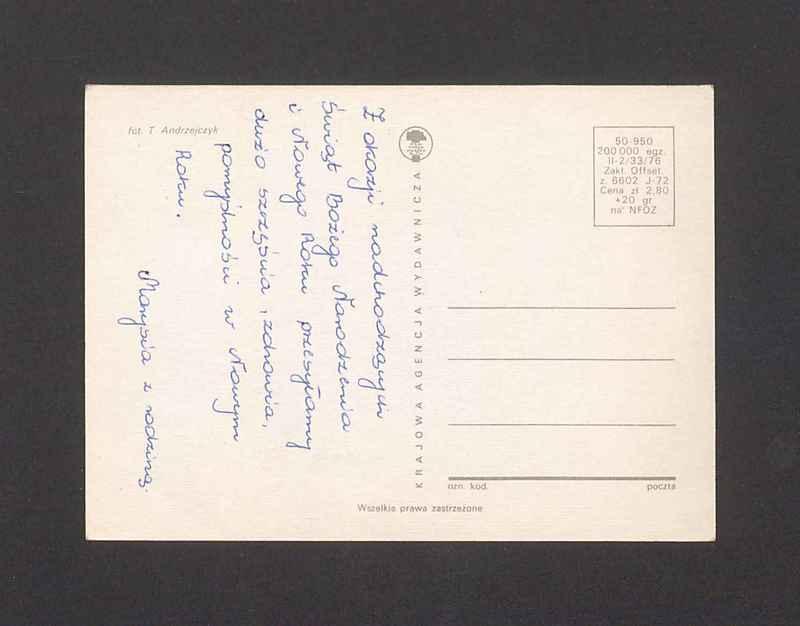 fot. T. Andrzejczyk
Z okazji nadchodzących
Świąt Bożego Narodzenia
i Nowego Roku przesyłamy
dużo szczęścia, zdrowia,
pomyślności w Nowym
Roku.
Marysia z rodziną.
KRAJOWA AGENCJA WYDAWNICZA
50-950
200 000 egz.
II-2/33/76
Zakł. Offset.
z. 6602 J-72
Cena zł 2,80
+20 gr
na NFOZ
ozn. kod.
poczta
Wszelkie prawa zastrzeżone